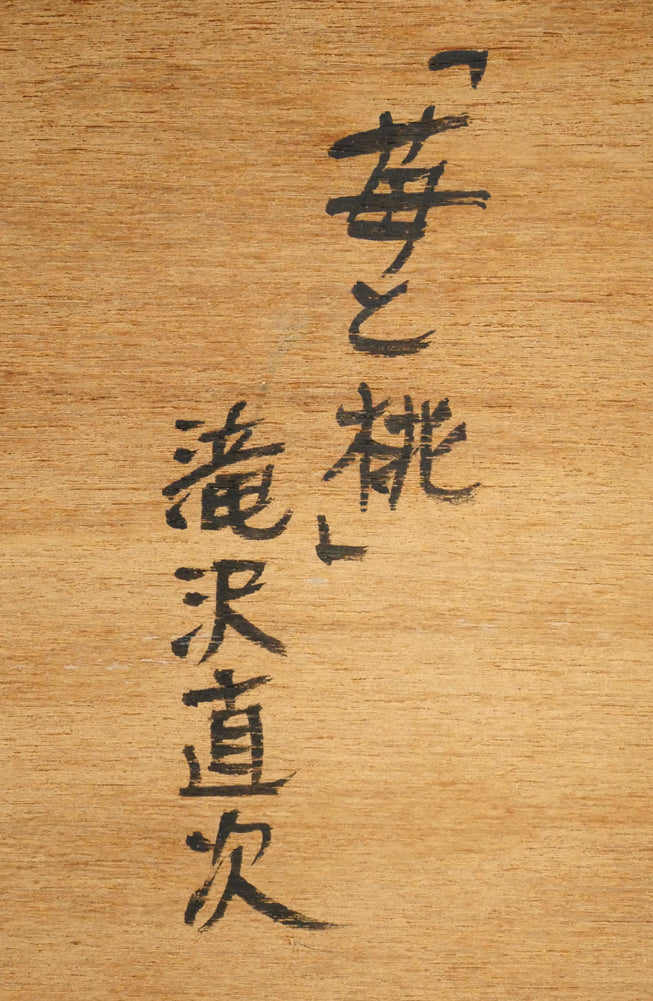 「苺と桃」
滝沢直次